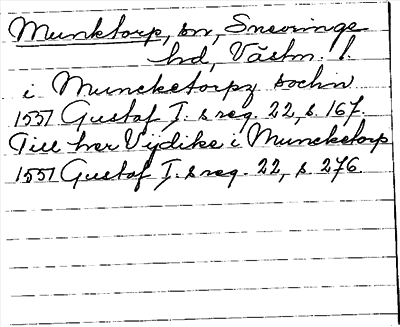 Munktorp, sn, Snevringe
hd, Västm. l.
i Muncketorpz sochn
1551 Gustaf I. s reg. 22, s. 167.
Till her Vydike i Muncketorp
1551 Gustaf I. s reg. 22, s. 276.